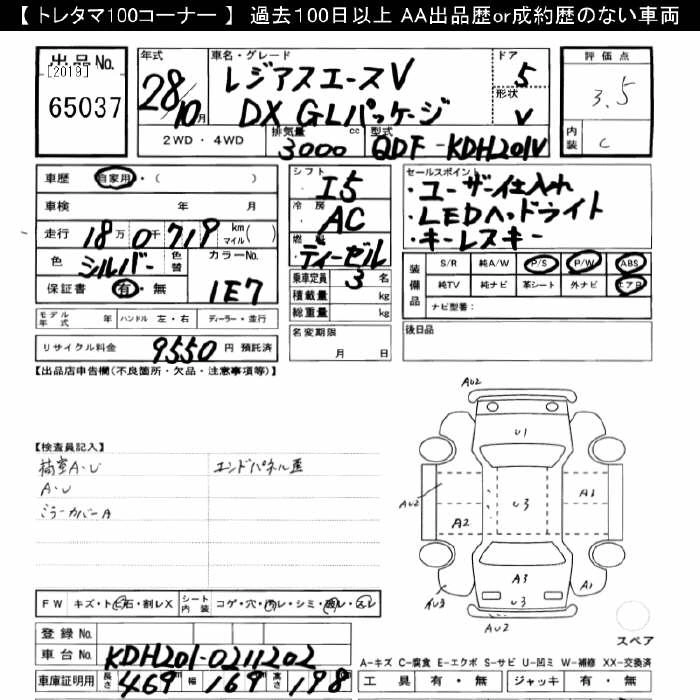 【 トレタマ100コーナー 】 過去100日以上 AA出品歴or成約歴のない車両
出品No.
[2019]
65037
年式
28/10月
車名・グレード
レジアスエースV
DX GLパッケージ
ドア
5
形状
V
評価点
3.5
内装
C
2WD・4WD
排気量
3000cc
型式
QDF-KDH201V
車歴 自家用・( )
車検 年 月
走行 18万0千719 km マイル( )
色 シルバー 色替
カラーNo.
1E7
保証書 有・無
モデル年式 年 ハンドル 左・右 ディーラー・並行
リサイクル料金 9550円 預託済
シフト
I5
冷房
AC
燃料
ディーゼル
乗車定員 3名
積載量 kg
総重量 kg
名変期限
月 日
セールスポイント
・ユーザー仕入れ
・LEDヘッドライト
・キーレスキー
装備品
S/R 純A/W P/S P/W ABS
純TV 純ナビ 革シート 外ナビ エアB
ナビ型番：
後日品
【出品店申告欄(不良箇所・欠品・注意事項等)】
【検査員記入】
荷室A・U エンドパネル歪
A・U
ミラーカバーA
AU2
U1
AU2
U3
A1
A2
A3
U3
A1
AU3
AU2
スペア
FW キズ・トビ石・割レX シート内装 コゲ・穴・汚レ・シミ・破レ・スレ
登録No.
車台No. KDH201-0211202
車庫証明用 長さ 469 幅 169 高さ 198
A-キズ C-腐食 E-エクボ S-サビ U-凹ミ W-補修 XX-交換済
工具 有・無 ジャッキ 有・無